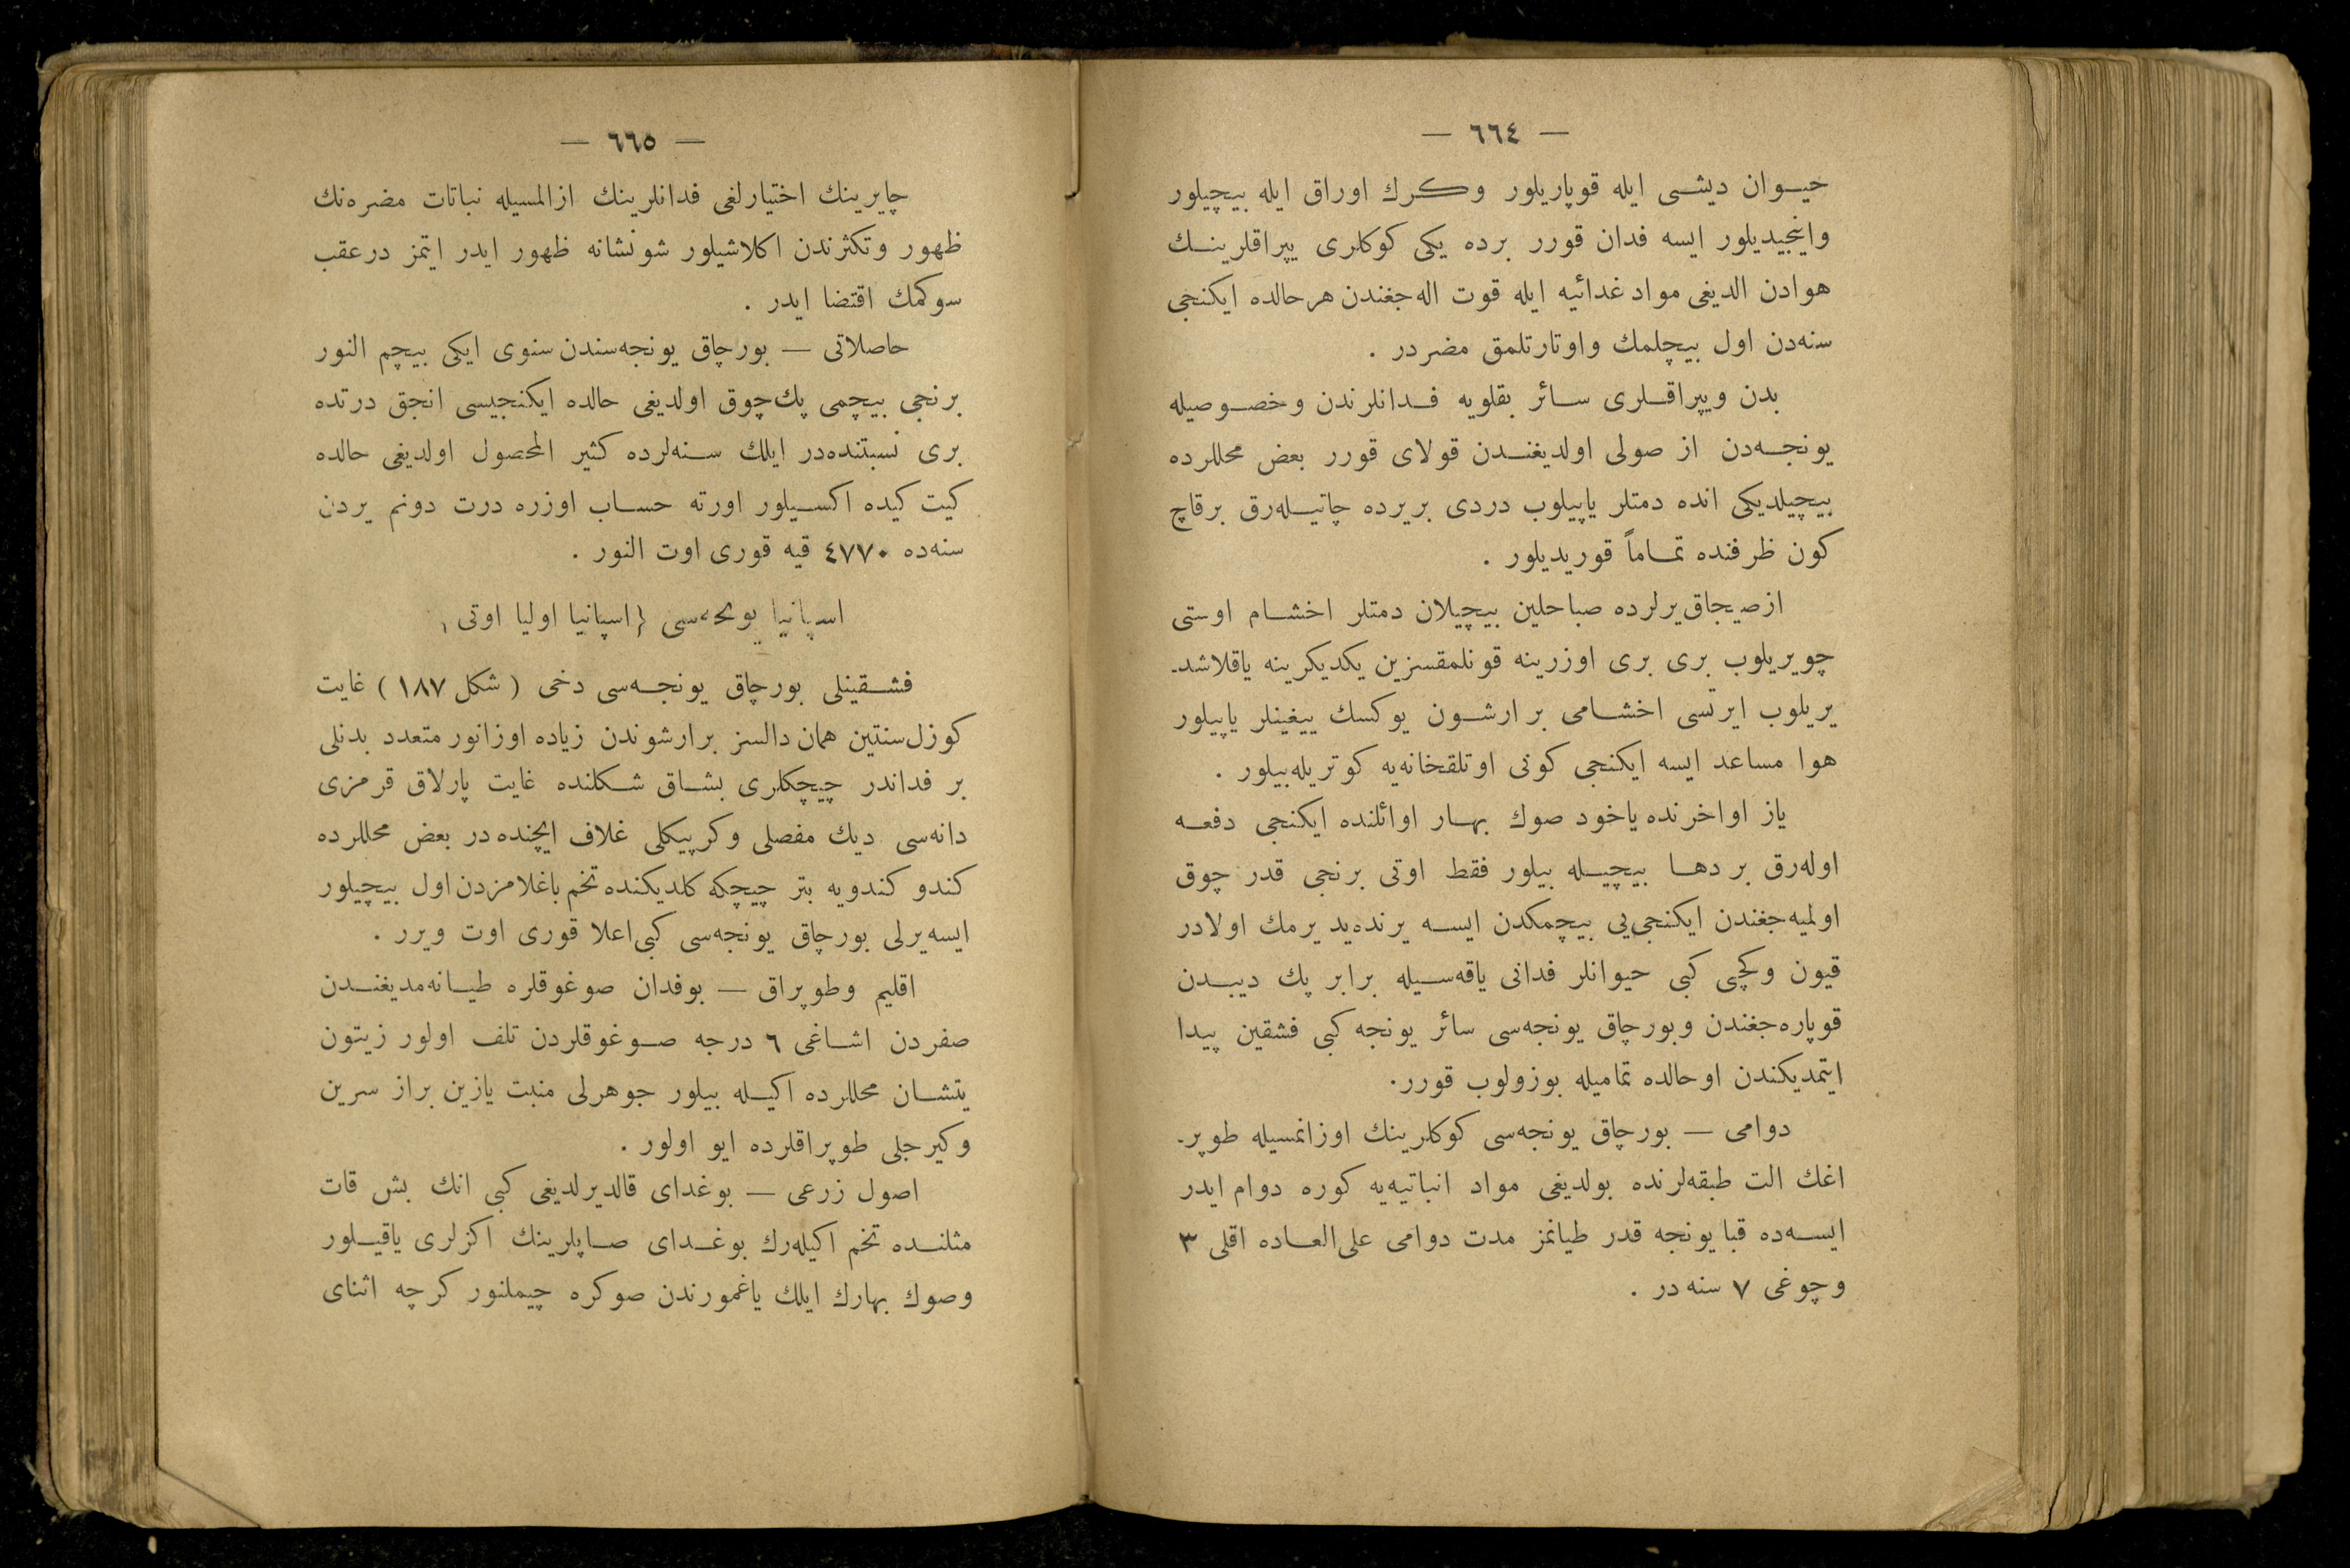 — ٦٦٤ —
حیوان دیشی ایله قوپاریلور وكرك اوراق ایله بیچیلور
واینجیدیلور ایسه فدان قورر برده یكی كوكلری یپراقلرینك
هوادن الدیغی مواد غدائیه ایله قوت اله‌جغندن هرحالده ایكنجی
سنه‌دن اول بیچلمك واوتارتلمق مضردر .
بدن ویپراقلری سائر بقلویه فدانلرندن وخصوصیله
یونجه‌دن از صولی اولدیغندن قولای قورر بعض محللرده
بیچیلدیكی انده دمتلر یاپیلوب دردی بریرده چاتیله‌رق برقاچ
كون ظرفنده تماماً قوریدیلور .
ازصیجاق یرلرده صباحلین بیچیلان دمتلر اخشام اوستی
چویریلوب بری بری اوزرینه قونلمقسزین یكدیكرینه یاقلاشد-
یریلوب ایرتسی اخشامی برارشون یوكسك ییغینلر یاپیلور
هوا مساعد ایسه ایكنجی كونی اوتلقخانه‌یه كوتریله‌بیلور .
یاز اواخرنده یاخود صوك بهار اوائلنده ایكنجی دفعه
اوله‌رق بردها بیچیله بیلور فقط اوتی برنجی قدر چوق
اولمیه‌جغندن ایكنجی‌یی بیچمكدن ایسه یرنده‌یدیرمك اولادر
قیون وكچی كبی حیوانلر فدانی یاقه‌سیله برابر پك دیبدن
قوپاره‌جغندن وبورچاق یونجه‌سی سائر یونجه كبی فشقین پیدا
ایتمدیكندن اوحالده تمامیله بوزولوب قورر.
دوامی — بورچاق یونجه‌سی كوكلرینك اوزانمسیله طوپر-
اغك الت طبقه‌لرنده بولدیغی مواد انباتیه‌یه كوره دوام ایدر
ایسه‌ده قبا یونجه قدر طیانمز مدت دوامی علی‌العاده اقلی ٣
وچوغی ٧ سنه‌در .
— ٦٦٥ —
چایرینك اختیارلغی فدانلرینك ازالمسیله نباتات مضره‌نك
ظهور وتكثرندن اكلاشیلور شونشانه ظهور ایدر ایتمز درعقب
سوكمك اقتضا ایدر .
حاصلاتی — بورچاق یونجه‌سندن سنوی ایكی بیچم النور
برنجی بیچمی پك‌چوق اولدیغی حالده ایكنجیسی انجق درتده
بری نسبتنده‌در ایلك سنه‌لرده كثیر المحصول اولدیغی حالده
كیت كیده اكسیلور اورته حساب اوزره درت دونم یردن
سنه‌ده ٤٧٧٠ قیه قوری اوت النور .
اسپانیا یونجه‌سی (اسپانیا اولیا اوتی)
فشقینلی بورچاق یونجه‌سی دخی ( شكل ١٨٧ ) غایت
كوزل‌سنتین همان دالسز برارشوندن زیاده اوزانور متعدد بدنلی
بر فداندر چیچكلری بشاق شكلنده غایت پارلاق قرمزی
دانه‌سی دیك مفصلی وكرپیكلی غلاف ایچنده‌در بعض محللرده
كندو كندویه بتر چیچكه كلدیكنده تخم باغلامزدن اول بیچیلور
ایسه‌یرلی بورچاق یونجه‌سی كبی‌اعلا قوری اوت ویرر .
اقلیم وطوپراق — بوفدان صوغوقلره طیانه‌مدیغندن
صفردن اشاغی ٦ درجه صوغوقلردن تلف اولور زیتون
یتشان محللرده اكیله بیلور جوهرلی منبت یازین براز سرین
وكیرجلی طوپراقلرده ایو اولور .
اصول زرعی — بوغدای قالدیرلدیغی كبی انك بش قات
مثلنده تخم اكیله‌رك بوغدای صاپلرینك اكزلری یاقیلور
وصوك بهارك ایلك یاغمورندن صوكره چیملنور كرچه اثنای